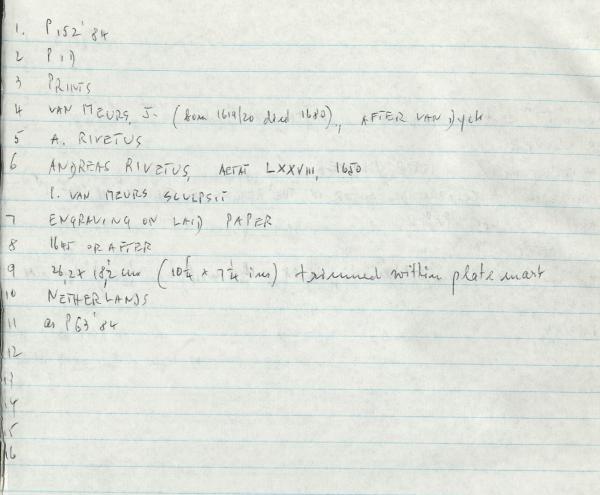 1. P152'84
2 P1D
3 PRINTS
4 VAN MEURS, J. (born 1619/20 died 1680)., AFTER VAN Dyck
5 A. RIVETUS
6 ANDREAS RIVETUS, AETAT LXXVIII, 1650
I. VAN MEURS SCULPSIT
7 ENGRAVING ON LAID PAPER
8 1645 OR AFTER
9 26,2 x 18,2 cm (10¼ x 7¼ ins) trimmed within plate mark
10 NETHERLANDS
11 as P63'84
12
13
14
15
16